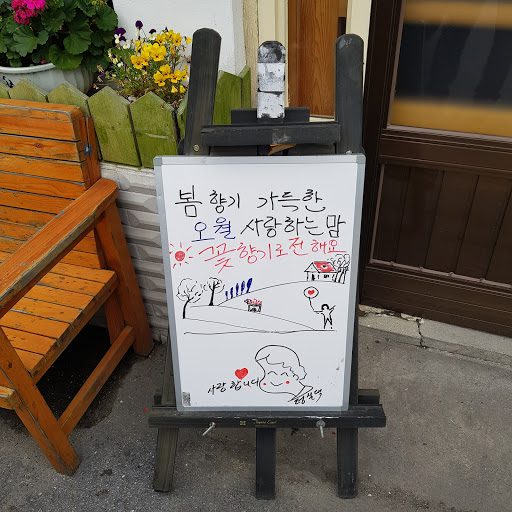 봄 향기 가득한
오월 사랑하는 맘
꽃향기로 전해요
사랑합니다